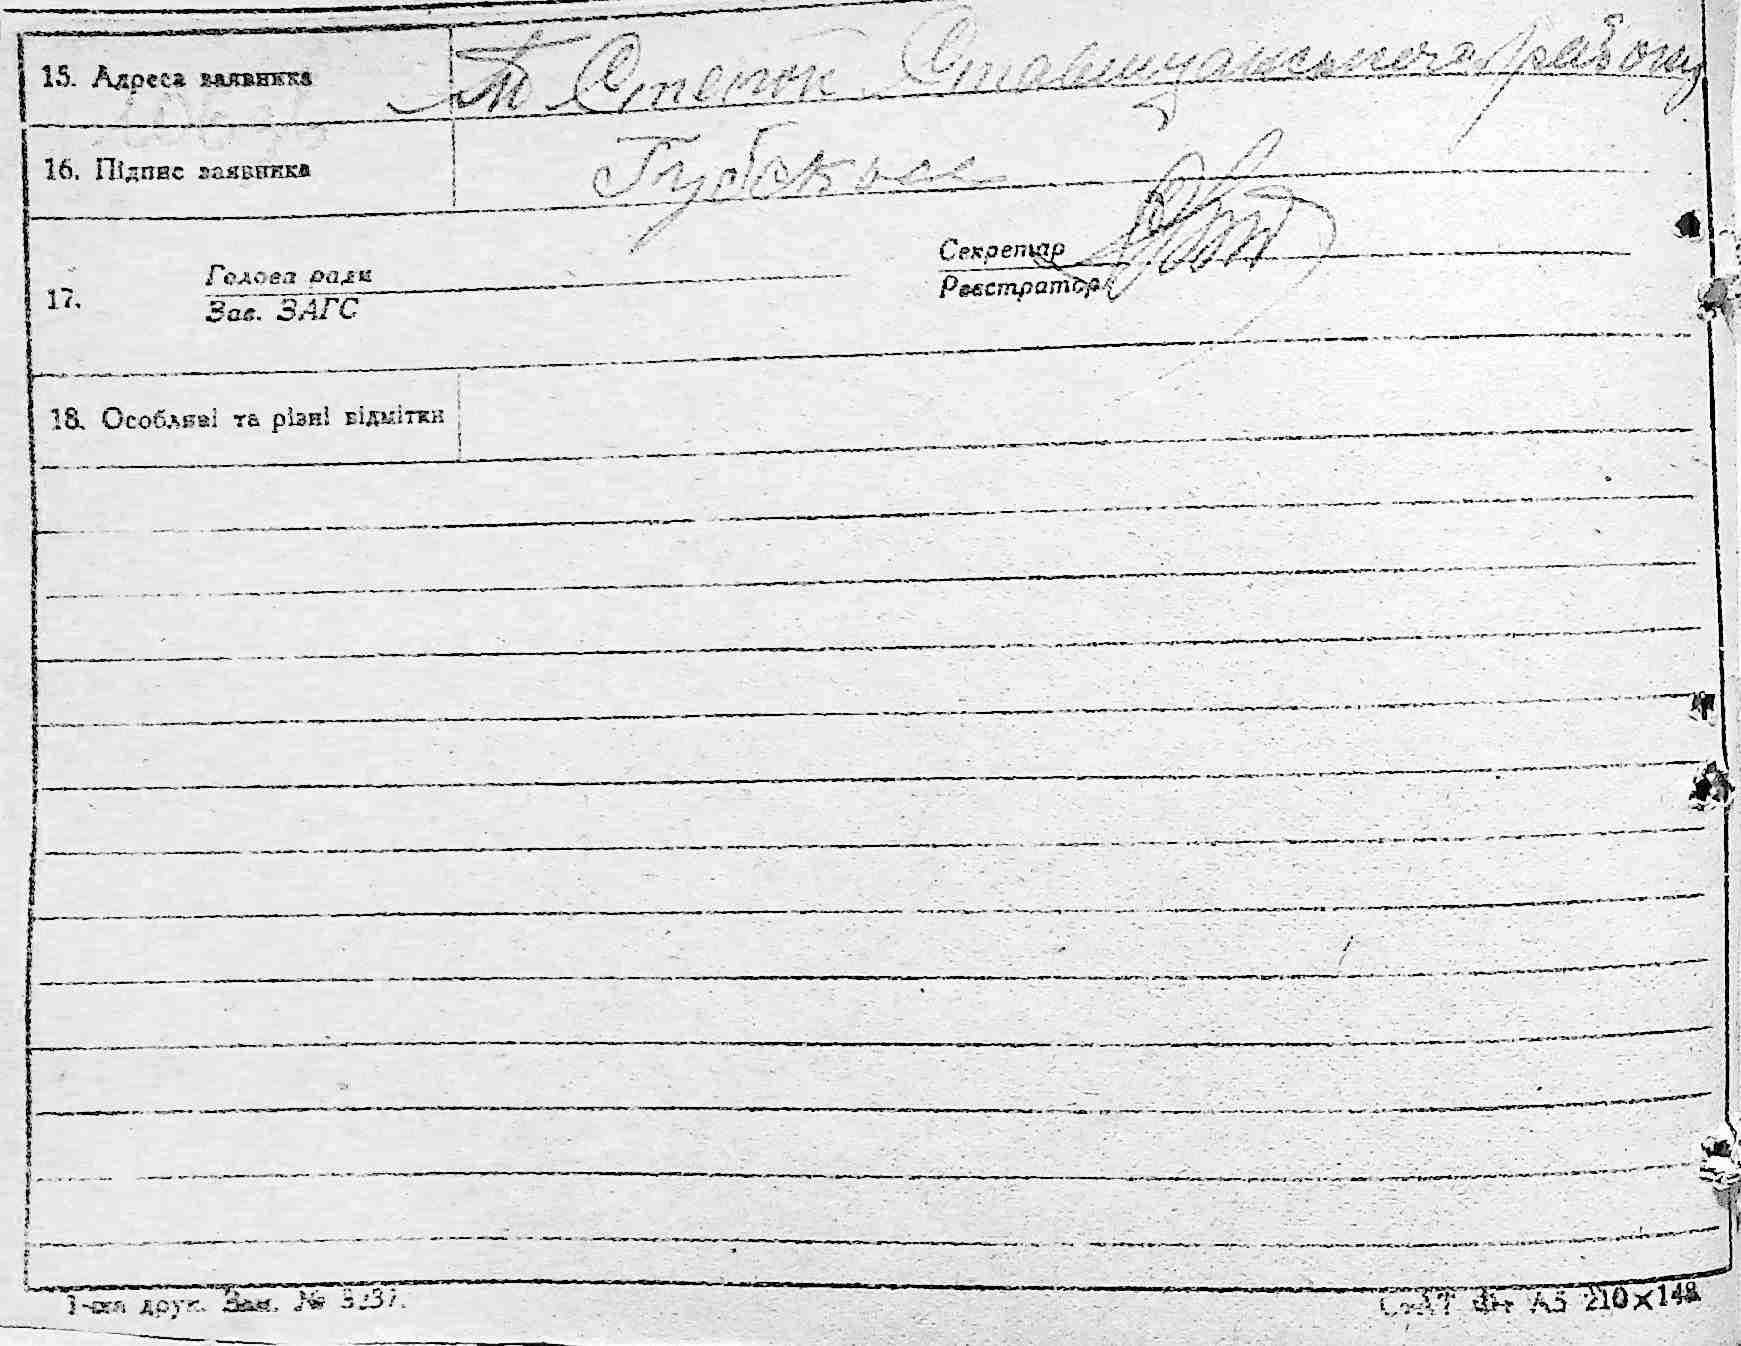 15. Адреса заявника Степок Ставищанського району
16. Підпис заявника
Голова ради Секретар
17. Зав. ЗАГС Реєстратор
18. Особливі та різні відмітки
друк. Зам. № 3237. А5 210×148